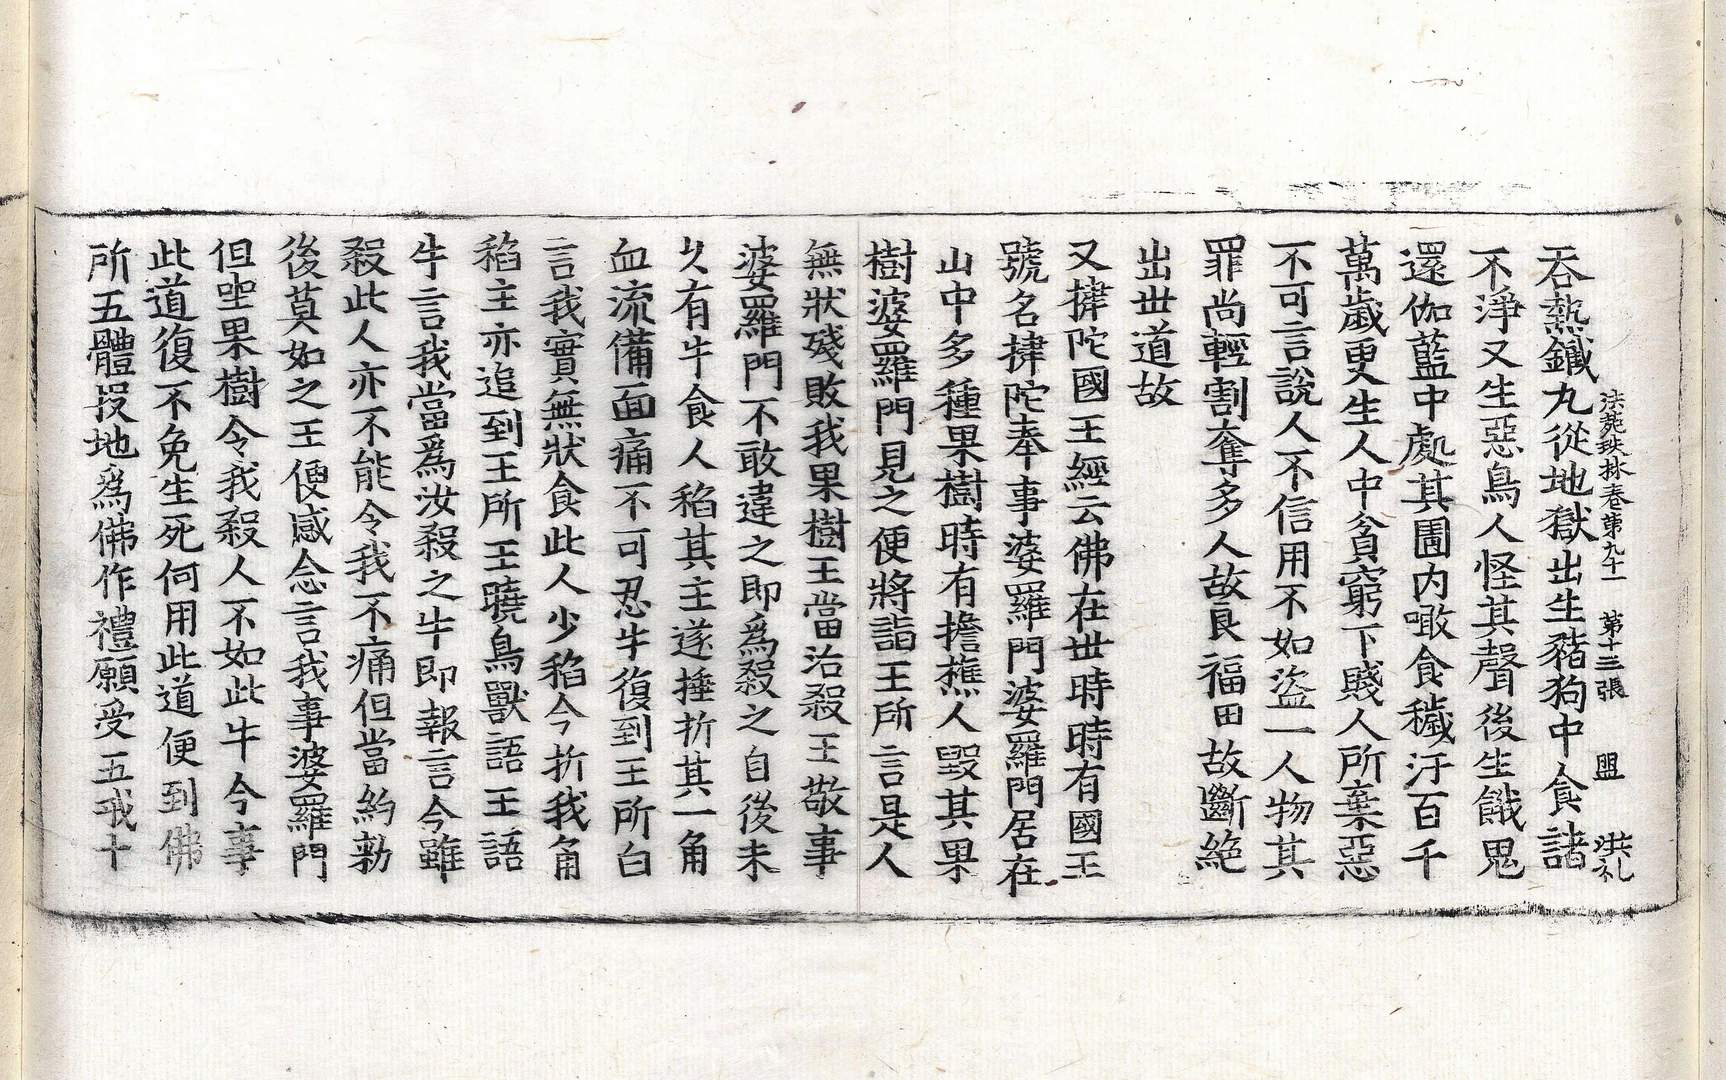 法苑珠林卷第九十一 第十三張 盟 洪礼
吞熱鐵丸從地獄出生豬狗中食諸
不淨又生惡鳥人怪其聲後生餓鬼
還伽藍中處其圊内噉食穢汙百千
萬歲更生人中貧窮下賤人所棄惡
不可言說人不信用不如盜一人物其
罪尚輕割奪多人故良福田故斷絕
出世道故
又揵陀國王經云佛在世時時有國王
號名揵陀奉事婆羅門婆羅門居在
山中多種果樹時有擔樵人毀其果
樹婆羅門見之便將詣王所言是人
無狀殘敗我果樹王當治殺王敬事
婆羅門不敢違之即爲殺之自後未
久有牛食人稻其主遂捶折其一角
血流備面痛不可忍牛復到王所白
言我實無狀食此人少稻今折我角
稻主亦追到王所王曉鳥獸語王語
牛言我當爲汝殺之牛即報言今雖
殺此人亦不能令我不痛但當約勑
後莫如之王便感念言我事婆羅門
但坐果樹令我殺人不如此牛今事
此道復不免生死何用此道便到佛
所五體投地爲佛作禮願受五戒十